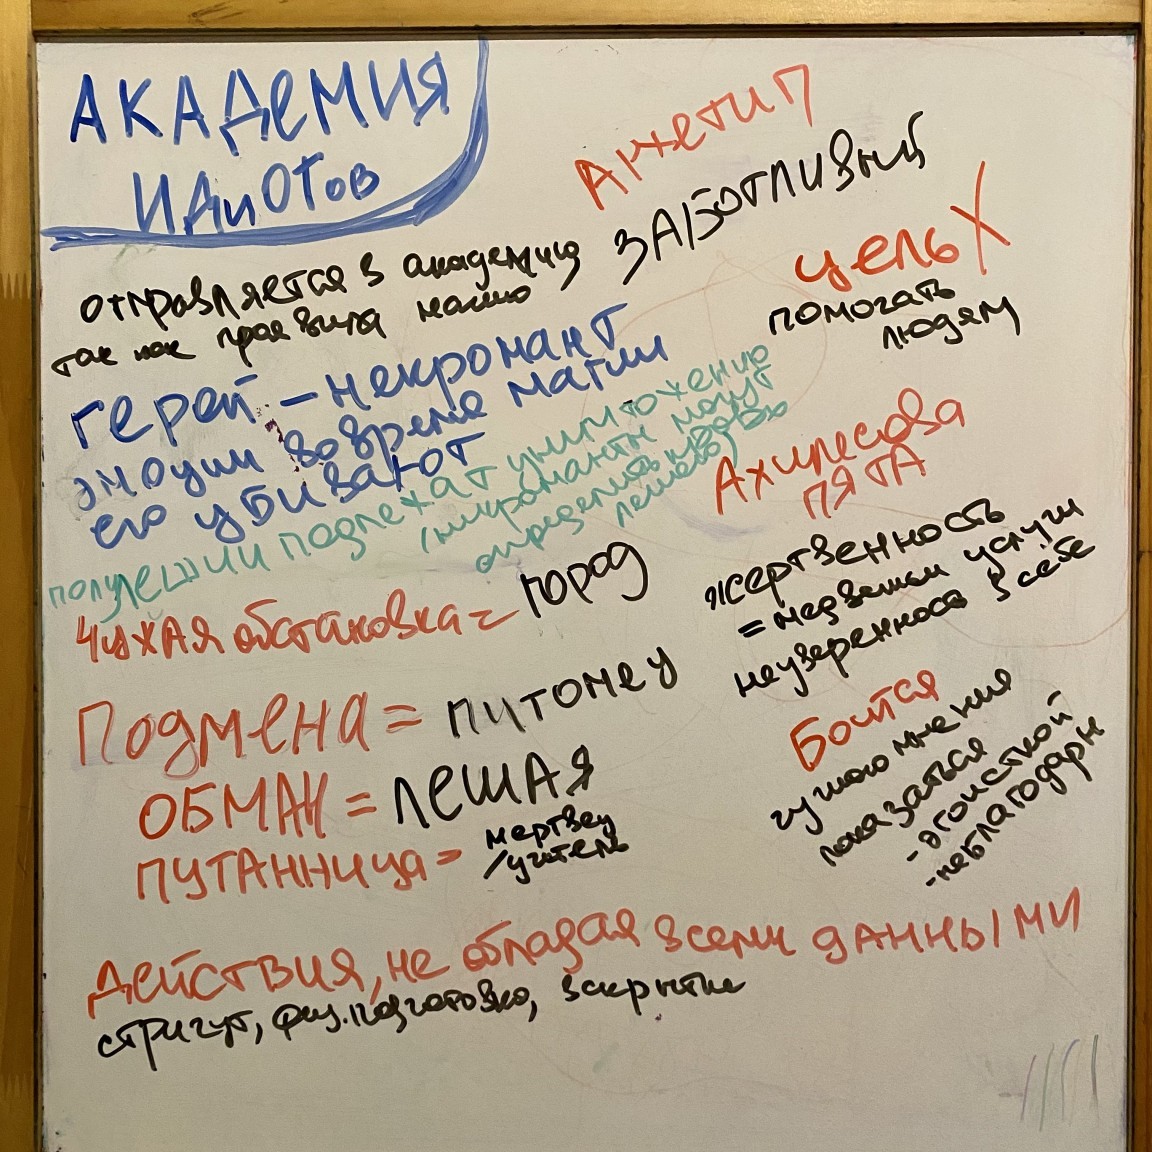 АКАДЕМИЯ
ИДиОТов
отправляется в академию
так как проявила магию
Архетип
ЗАБОТЛИВЫЙ
цель X
помогать
людям
герой – некромант
эмоции во время магии
его убивают
полулешии подлежат уничтожению
(некроманты могут
определить кровь
лешего)
Ахилесова
ПЯТА
жертвенность
= медвежьи услуги
неуверенность в себе
Чужая обстановка = город
Подмена = питомец
ОБМАН = ЛЕШАЯ
ПУТАННИЦА = мертвец
/учитель
Боится
чужого мнения
показаться
- эгоисткой
- неблагодарн
Действия, не обладая всеми данными
стригут, физ.подготовка, закрытие